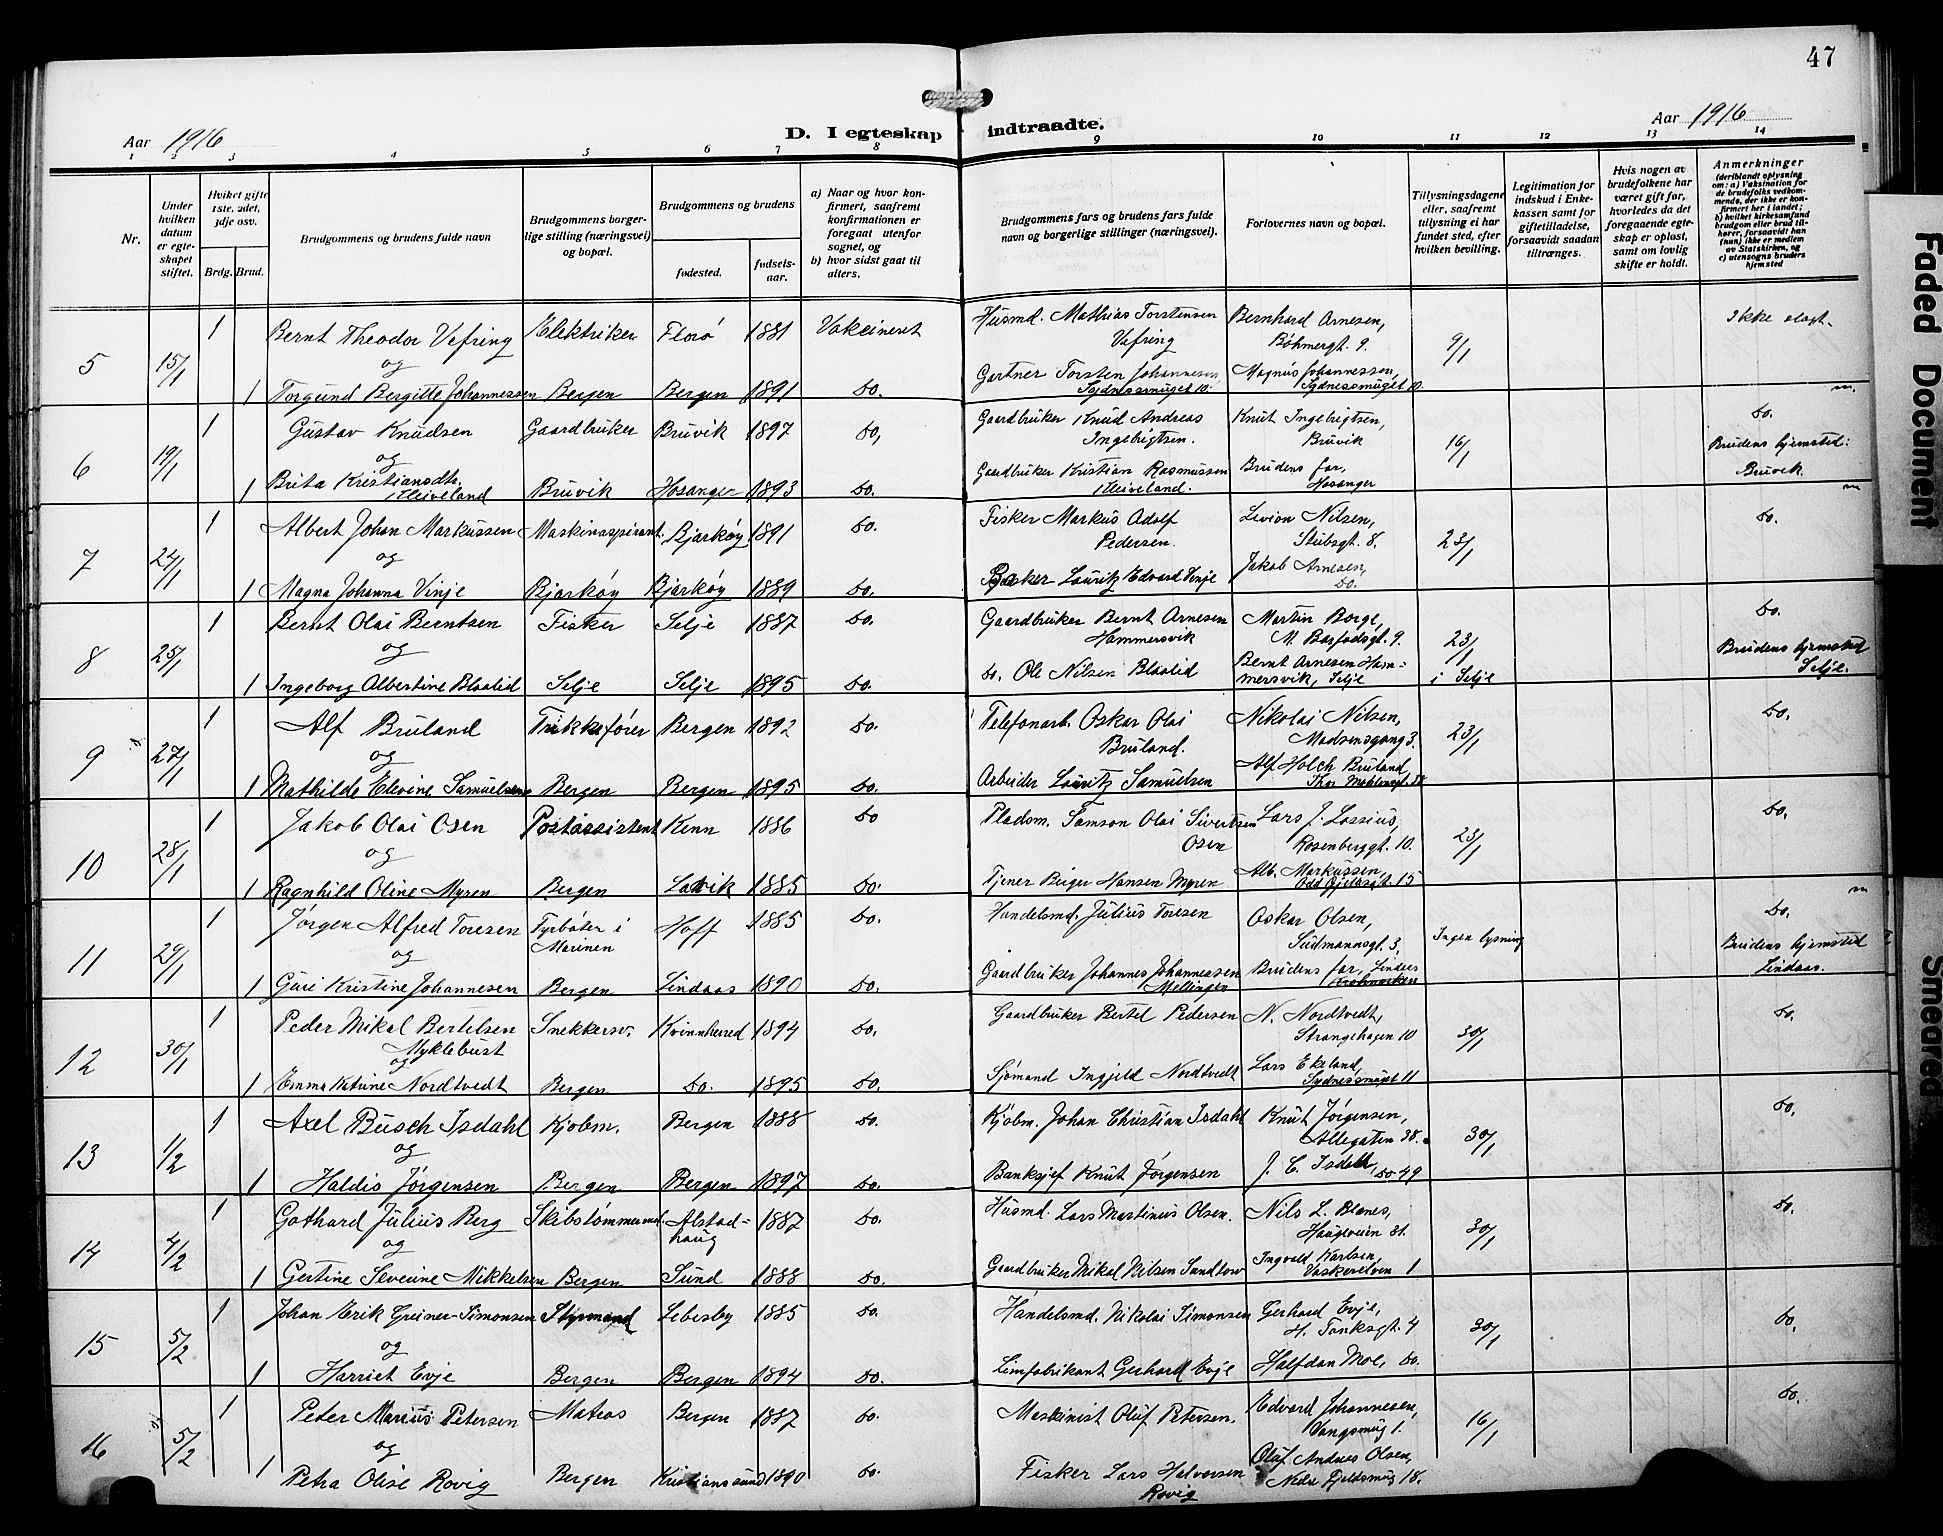 47
Aar 1916
D. I egteskap indtraadte.
Aar 1916
1 2 3 4 5 6 7 8 9 10 11 12 13 14
Nr.
Under hvilken datum er egteskapet stiftet.
Hviket gifte 1ste, 2det, 3dje osv.
Brdg. Brud.
Brudgommens og brudens fulde navn
Brudgommens borgerlige stilling (næringsvei) og bopæl.
Brudgommens og brudens
fødested.
fødselsaar.
a) Naar og hvor konfirmert, saafremt konfirmationen er foregaat utenfor sognet, og
b) hvor sidst gaat til alters.
Brudgommens fars og brudens fars fulde navn og borgerlige stillinger (næringsvei).
Forlovernes navn og bopæl.
Tillysningsdagene eller, saafremt tillysning ei har fundet sted, efter hvilken bevilling.
Legitimation for indskud i Enkekassen samt for giftetilladelse, forsaavidt saadan tiltrænges.
Hvis nogen av brudefolkene har været gift før, hvorledes da det foregaaende egteskap er opløst, samt om lovlig skifte er holdt.
Anmerkninger
(deriblandt oplysning om: a) Vaksination for de brudefolks vedkommende, der ikke er konfirmert her i landet; b) hvilket kirkesamfund brudgom eller brud tilhører, forsaavidt han (hun) ikke er medlem av Statskirken, og c) utensogns bruders hjemsted
5 15/1 1 Bernt Theodor Vefring Elektriker Florø 1881 Vakcineret Husmd. Mathias Torstensen Vefring Bernhard Arnesen, Bøhmergt. 9. 9/1 Ikke slagt.
og
1 Torgund Bergitte Johannessen Bergen Bergen 1891 do. Gartner Torsten Johannesen, Sydnessmuget 10. Magnus Johannessen, Sydnessmuget 10.
6 19/1 1 Gustav Knudsen Gaardbruker Bruvik 1897 do, Gaardbruker Knud Andreas Ingebrigtsen. Knut Ingebrigtsen, Bruvik 16/1 do. Brudens hjemsted: Bruvik.
og
1 Brita Kristiansdtr. Kleiveland Bruvik Hosanger 1893 do. Gaardbruker Kristian Rasmussen Kleiveland. Brudens far, Hosanger
7 24/1 1 Albert Johan Markussen Maskinaspirant. Bjarkøy 1891 do. Fisker Markus Adolf Pedersen. Levion Nilsen, Stubsgt. 8. 23/1 do.
og
1 Magna Johanna Vinje Bjarkøy Bjarkøy 1889 do. Lauritz Edvard Vinje Jakob Arnesen, do.
8 25/1 1 Bernt Olai Berntsen Fisker Selje 1887 do. Gaardbruker Bernt Arnesen Hammersvik Martin Borge, M. Barfodsgt. 9. 23/1 i Selje do. Brudens hjemsted Selje.
og
1 Ingeborg Albertine Blaalid Selje Selje 1895 do. do. Ole Nilsen Blaalid Bernt Arnesen Hammersvik, Selje
9 27/1 1 Alf Bruland Trikkefører Bergen 1892 do. Telefonarb. Oskar Olai Bruland. Nikolai Nilsen, Madsensgang 3. 23/1 do.
og
1 Mathilde Elevine Samuelsen Bergen Bergen 1895 do. Arbeider Lauritz Samuelsen Alf Holck Bruland Thor Møhlensgt. 38
10 28/1 1 Jakob Olai Osen Postassistent Kenn 1886 do Pladsm. Samson Olai Sivertsen Osen Lars J. Lossius, Rosenberggt. 10. 23/1 do.
og
1 Ragnhild Oline Myren Bergen Lavik 1885 do. Tjener Birger Hansen Myren Alb. Markussen, Odd Gjeldsgt. 15
11 29/1 1 Jørgen Alfred Toresen Fyrbøter i Marinen Hoff 1885 do. Handelsmd. Julius Toresen Oskar Olsen, Sudmannsgt. 3. Ingen lysning do. Brudens hjemsted Lindaas.
og
1 Guri Kristine Johannesen Bergen Lindaas 1890 do. Gaardbruker Johannes Johannessen Mellingen Brudens far, Lindaas
12 30/1 1 Peder Mikal Bertelsen Myklebust Snekkersv. Kvinnherred 1894 do. Gaardbruker Bertel Pedersen N. Nordtvedt, Strangehagen 10 30/1 do.
og
1 Emma Katrine Nordtvedt Bergen do. 1895 do. Sjømand Ingjeld Nordtvedt Lars Ekeland, Sydnessmuget 11
13 1/2 1 Axel Busch Isdahl Kjøbm. Bergen 1888 do. Kjøbm. Johan Christian Isdahl Knut Jørgensen, Allegaten 38. 30/1 do.
og
1 Haldis Jørgensen Bergen Bergen 1897 do. Banksjef Knut Jørgensen J. C. Isdahl, do 49
14 4/2 1 Gothard Julius Berg Skibstømmermd. Alstadhaug 1887 do. Husmd. Lars Martinus Olsen. Nils L. Blenes, Haugeveien 31. 30/1 do.
og
1 Gertine Severine Mikkelsen Bergen Sund 1888 do. Gaardbruker Mikal Nilsen Sandtorv Ingvald Karlsen, Vaskerelven 1
15 5/2 1 Johan Erik Greiner-Simonsen Styrmand Lebesby 1885 do. Handelsmd. Nikolai Simonsen Gerhard Evje, H. Tanksgt. 4 30/1 do.
og
1 Harriet Evje Bergen Bergen 1894 do. Limfabrikant Gerhard Evje Halfdan Moe, do.
16 5/2 1 Peter Marius Petersen Matros Bergen 1887 do. Maskinist Oluf Petersen. Edvard Johannesen, Vangsmug 1. 16/1 do.
og
1 Petra Olise Rovig Bergen Kristianssund 1890 do. Fisker Lars Halvorsen Rovig Oluf Andreas Olsen, Nedre Fjeldsmug 18.
Faded Document
Smeared